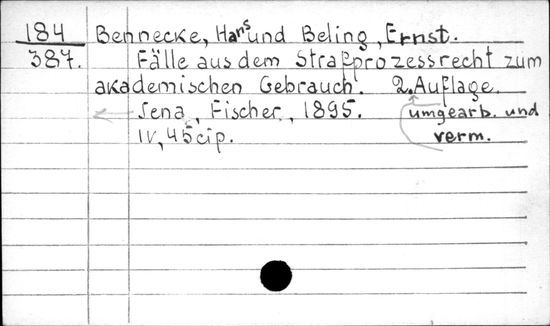 184 Bennecke, Hans und Beling, Ernst.
387. Fälle aus dem Strafprozessrecht zum
akademischen Gebrauch. 2. Auflage.
Jena, Fischer, 1895. umgearb. und
IV, 45 cip. verm.